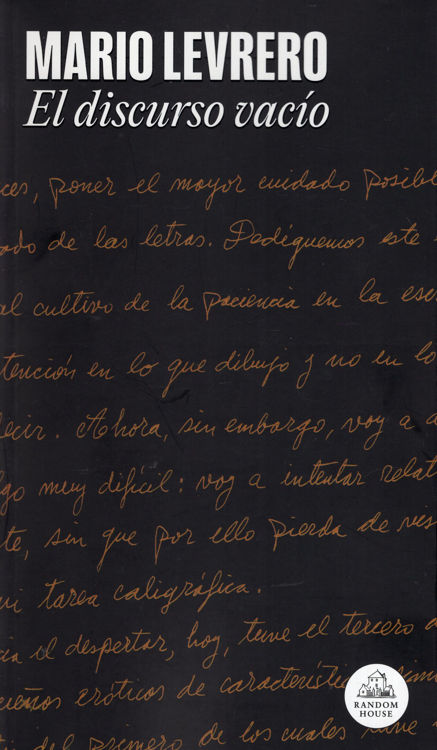 MARIO LEVRERO
El discurso vacío
ces, poner el mayor cuidado posibl
ado de las letras. Dediquemos este
al cultivo de la paciencia en la esc
tención en lo que dibujo y no en lo
decir. Ahora, sin embargo, voy a a
lgo muy difícil: voy a intentar relat
te, sin que por ello pierda de vis
mi tarea caligráfica.
cia el despertar, hoy, tuve el tercero d
ueños eróticos de característic
del primero de los cuales tuve
RANDOM
HOUSE